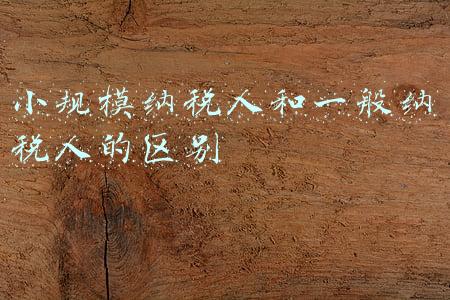 小规模纳税人和一般纳
税人的区别